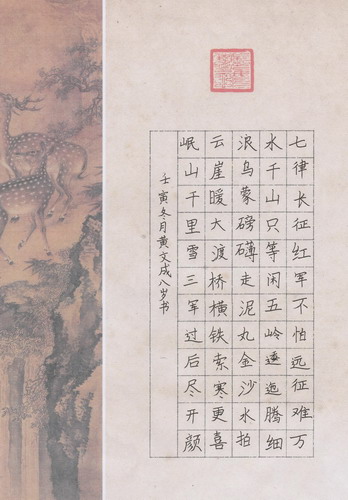 七律长征红军不怕远征难万
水千山只等闲五岭逶迤腾细
浪乌蒙磅礴走泥丸金沙水拍
云崖暖大渡桥横铁索寒更喜
岷山千里雪三军过后尽开颜
壬寅冬月黄文成八岁书